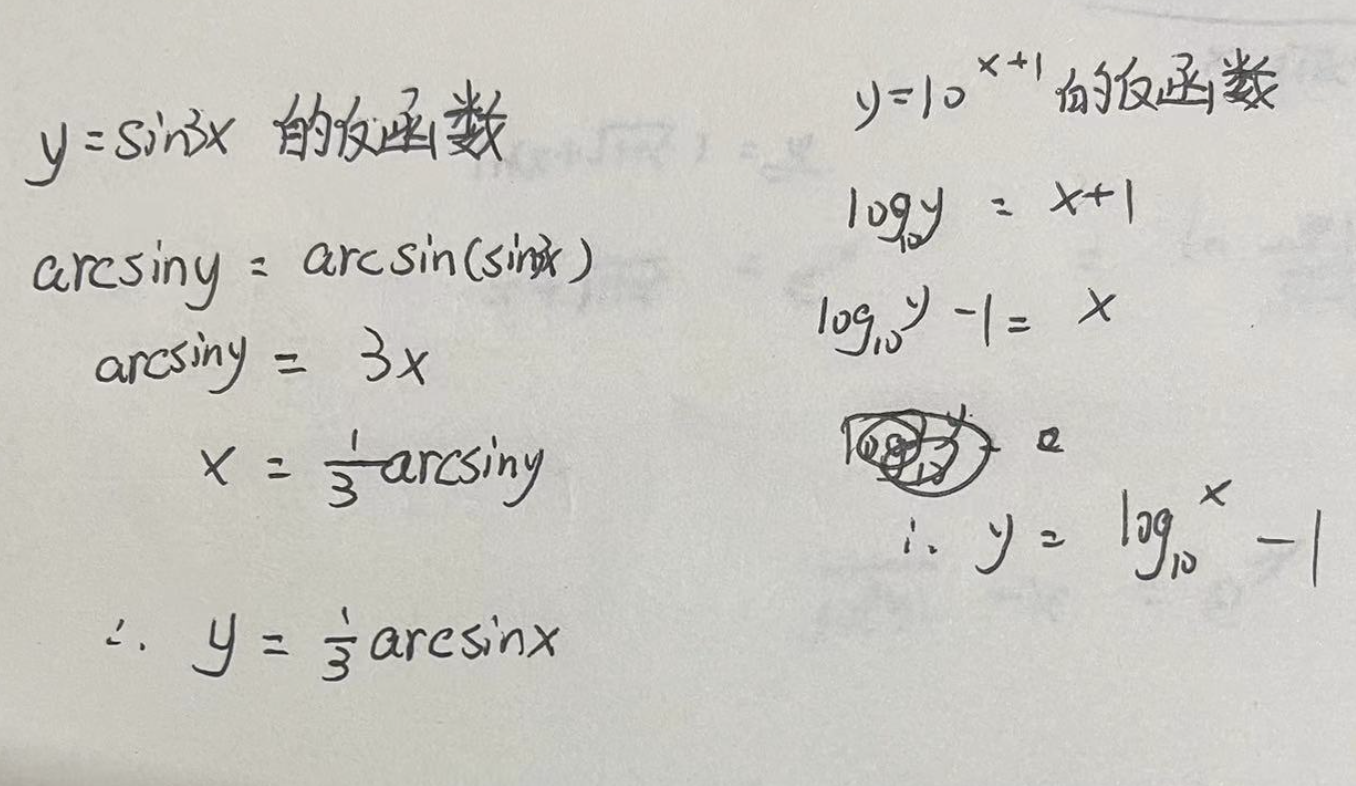 y=sin3x 的反函数
arcsiny = arcsin(sin3x)
arcsiny = 3x
x = 1/3 arcsiny
∴ y = 1/3 arcsinx
y=10^{x+1} 的反函数
log₁₀y = x+1
log₁₀y -1 = x
∴ y = log₁₀x -1